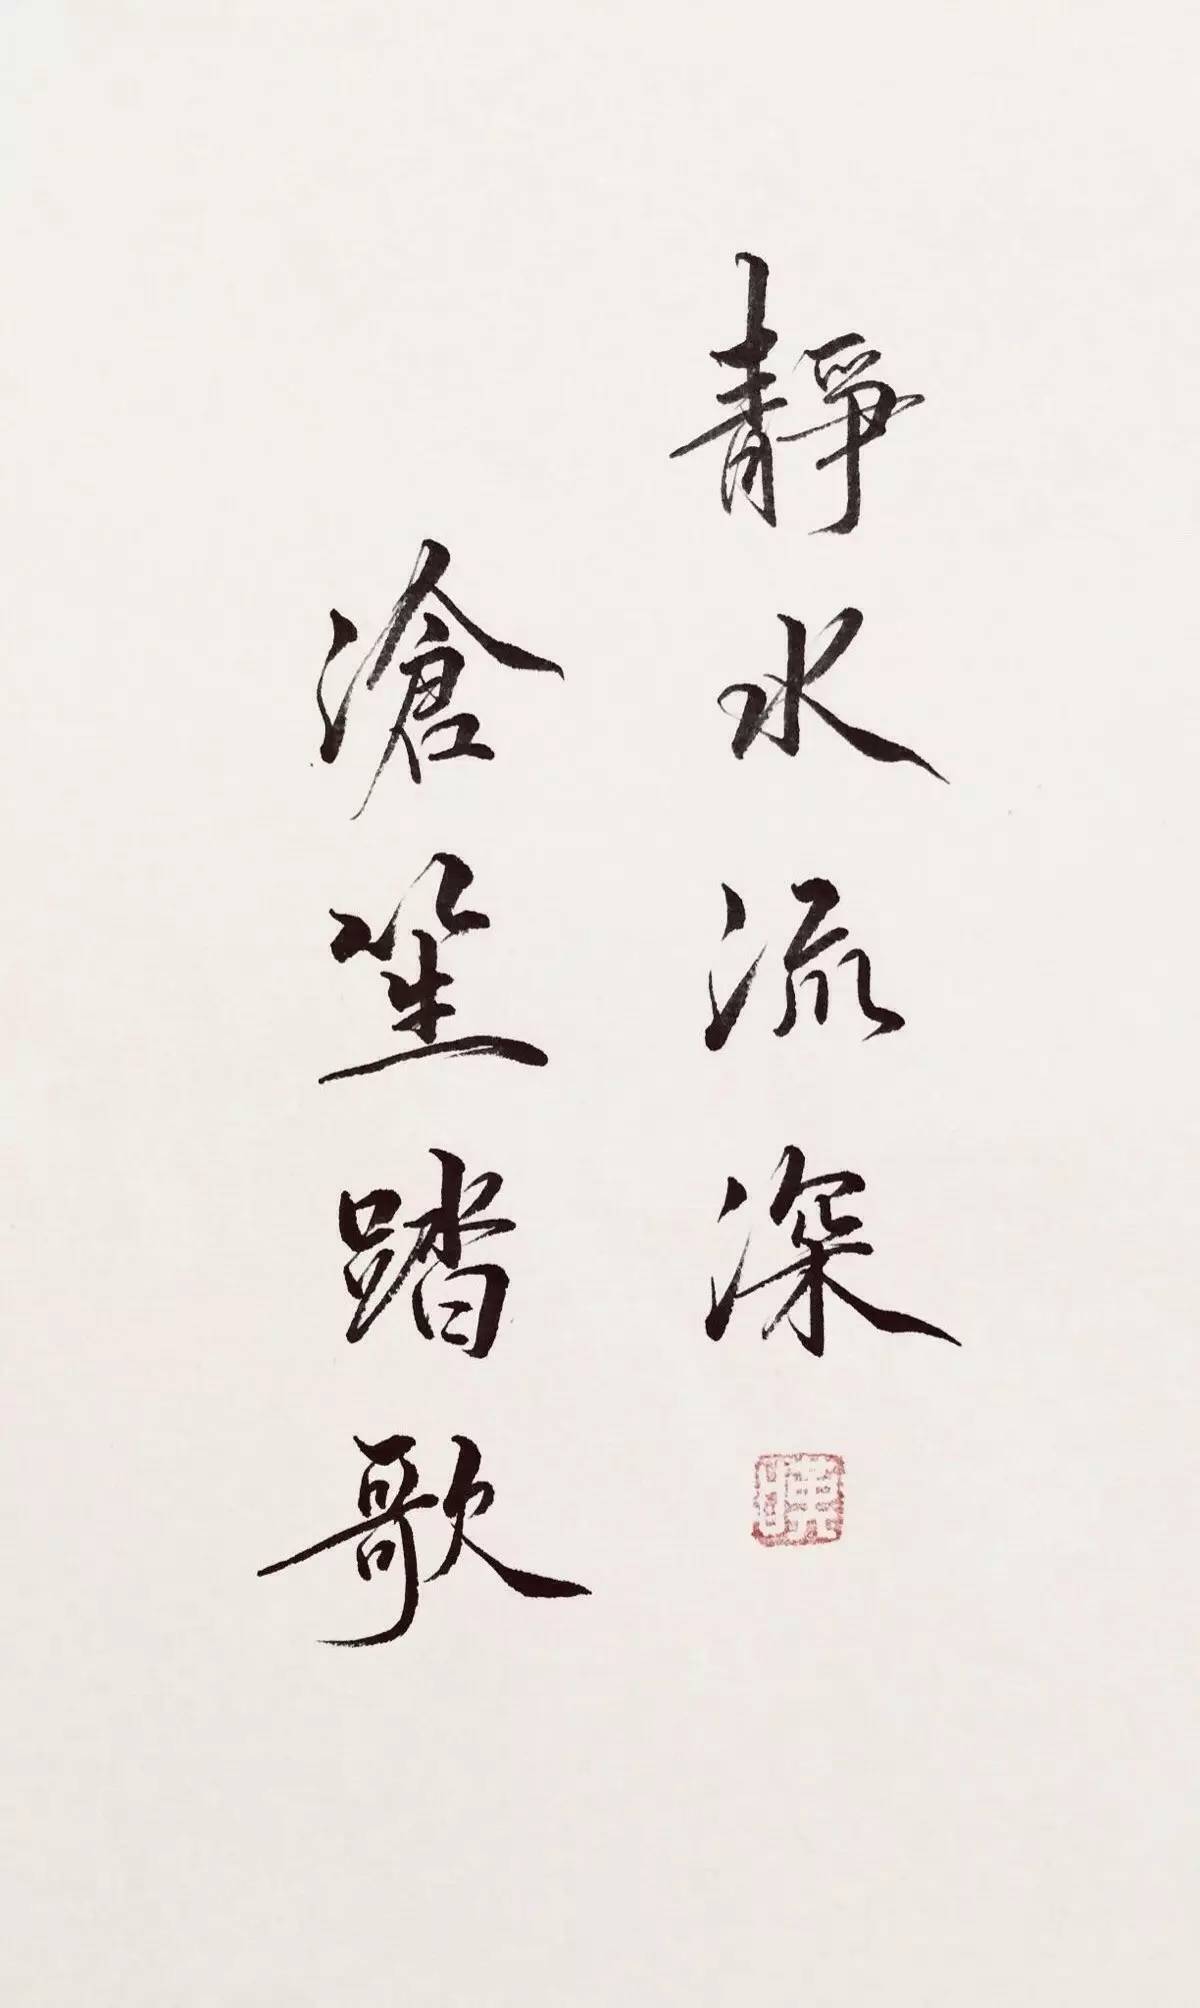 靜水流深
滄笙踏歌